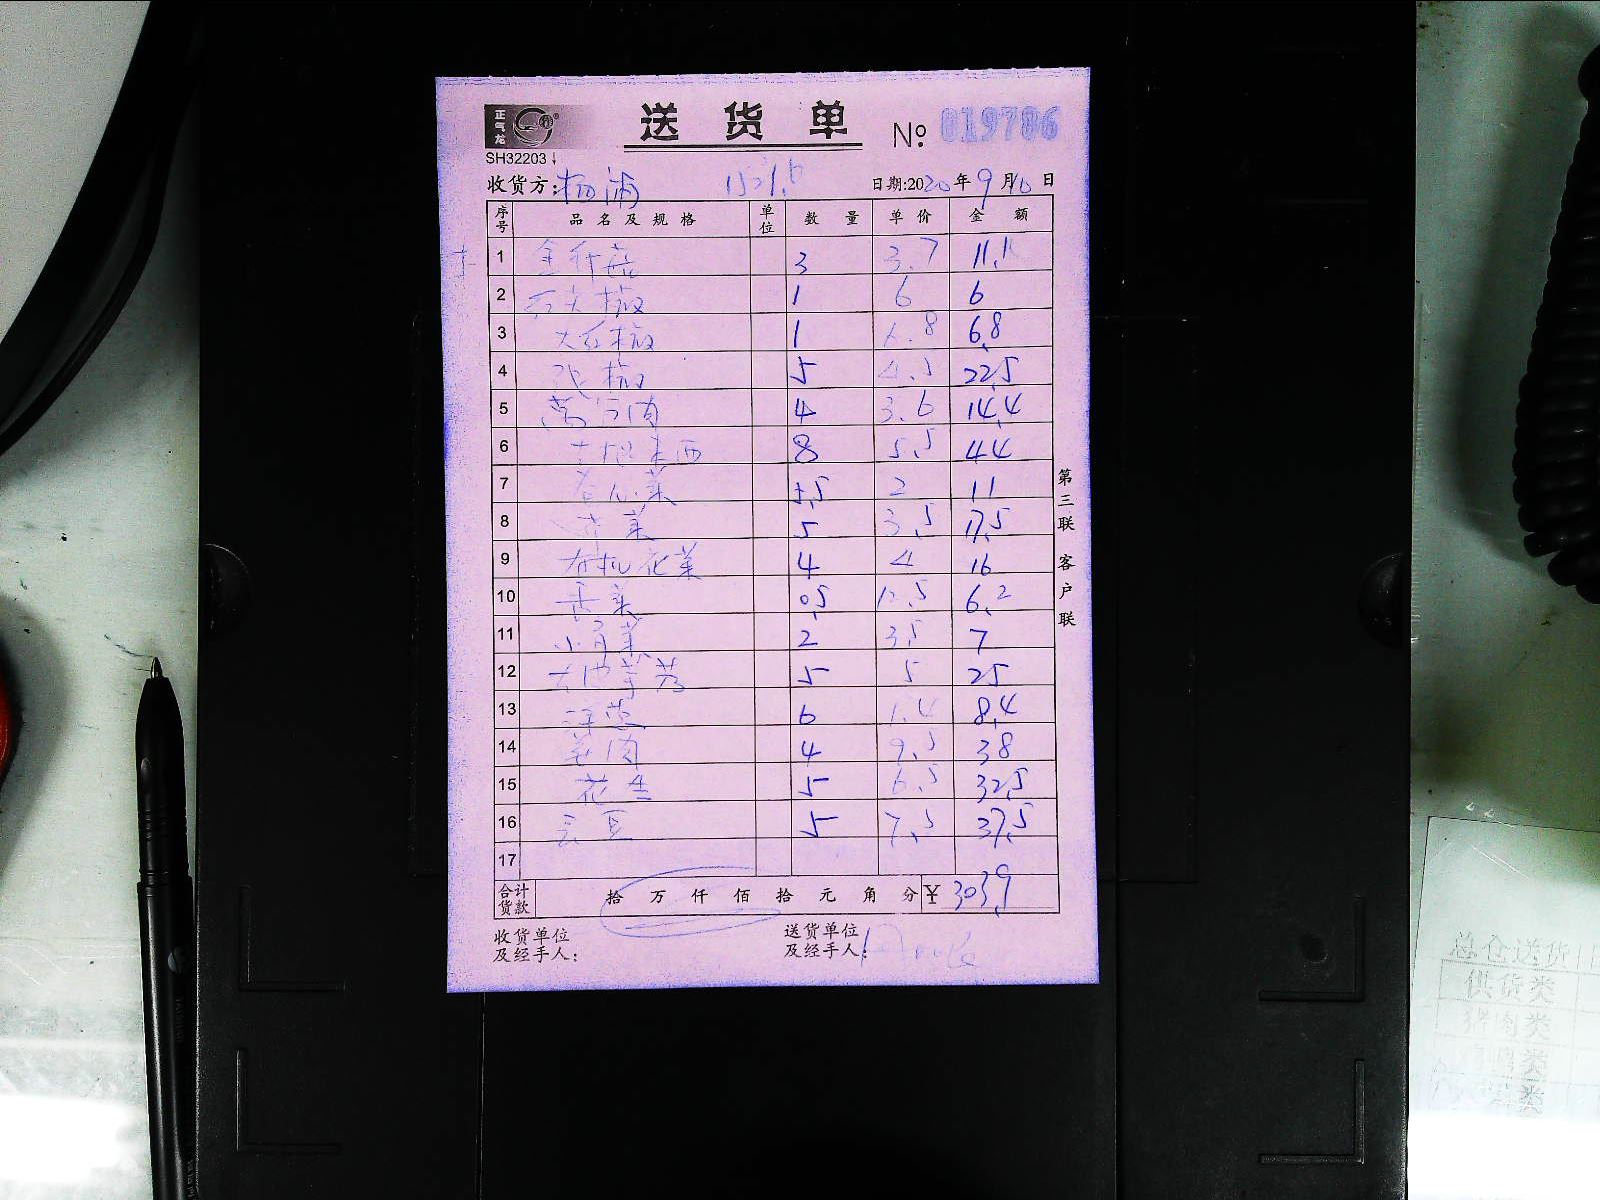 正气龙
送货单 № 019786
SH32203
收货方: 杨浦 1521.6 日期:2020年9月10日
序号 品名及规格 单位 数量 单价 金额
1 金针菇 3 3.7 11.1
2 1 6 6
3 大红椒 1 6.8 6.8
4 椒 5 4.5 22.5
5 莴笋肉 4 3.6 14.4
6 8 5.5 44
7 卷心菜 5.5 2 11
8 芹菜 5 3.5 17.5
9 有机花菜 4 4 16
10 香菜 0.5 12.5 6.2
11 小青菜 2 3.5 7
12 5 5 25
13 洋葱 6 1.4 8.4
14 姜肉 4 9.5 38
15 花生 5 6.5 32.5
16 豆 5 7.5 37.5
17
合计货款 拾 万 仟 佰 拾 元 角 分 ¥ 303.9
收货单位及经手人: 送货单位及经手人:
第三联 客户联
总仓送货
供货类
类
鸭类
类